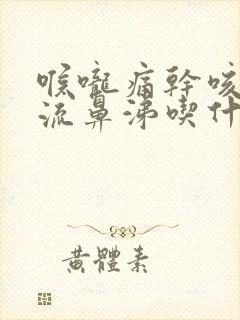 喉嚨痛幹咳
流鼻涕喫什
黃體素